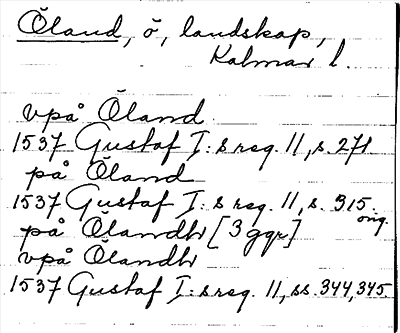 Öland, ö, landskap,
Kalmar l.
vpå Öland
1537 Gustaf I:s reg. 11, s. 271
på Öland
1537 Gustaf I:s reg. 11, s. 315
orig.
på Ölandh [3 ggr]
vpå Ölandh
1537 Gustaf I:s reg. 11, ss. 344, 345